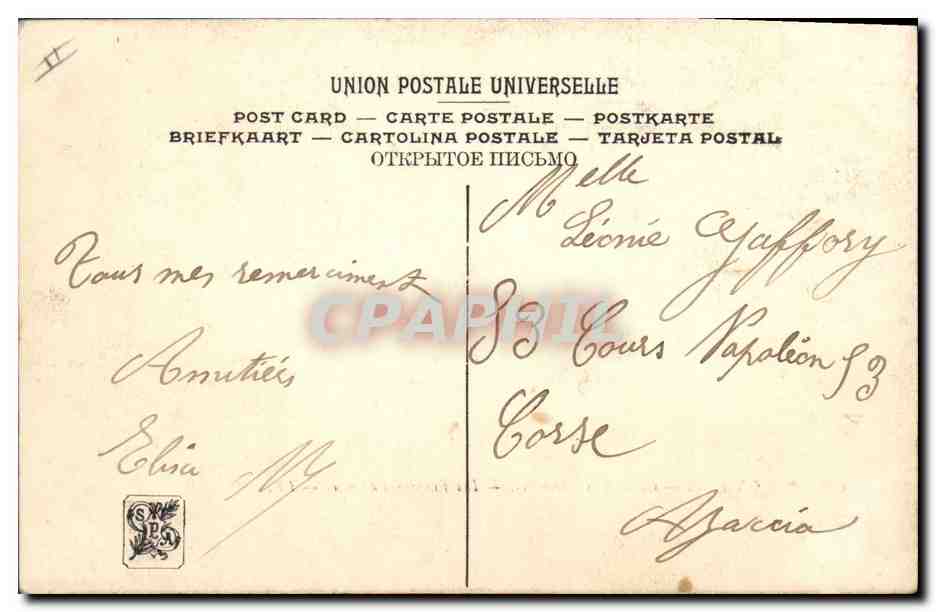 UNION POSTALE UNIVERSELLE
POST CARD — CARTE POSTALE — POSTKARTE
BRIEFKAART — CARTOLINA POSTALE — TARJETA POSTAL
ОТКРЫТОЕ ПИСЬМО
Tous mes remerciment
Amitiés
Elisa M
SPA
Melle
Léonie Gaffory
53 Cours Napoléon 53
Corse
Ajaccio
CPAPHIL